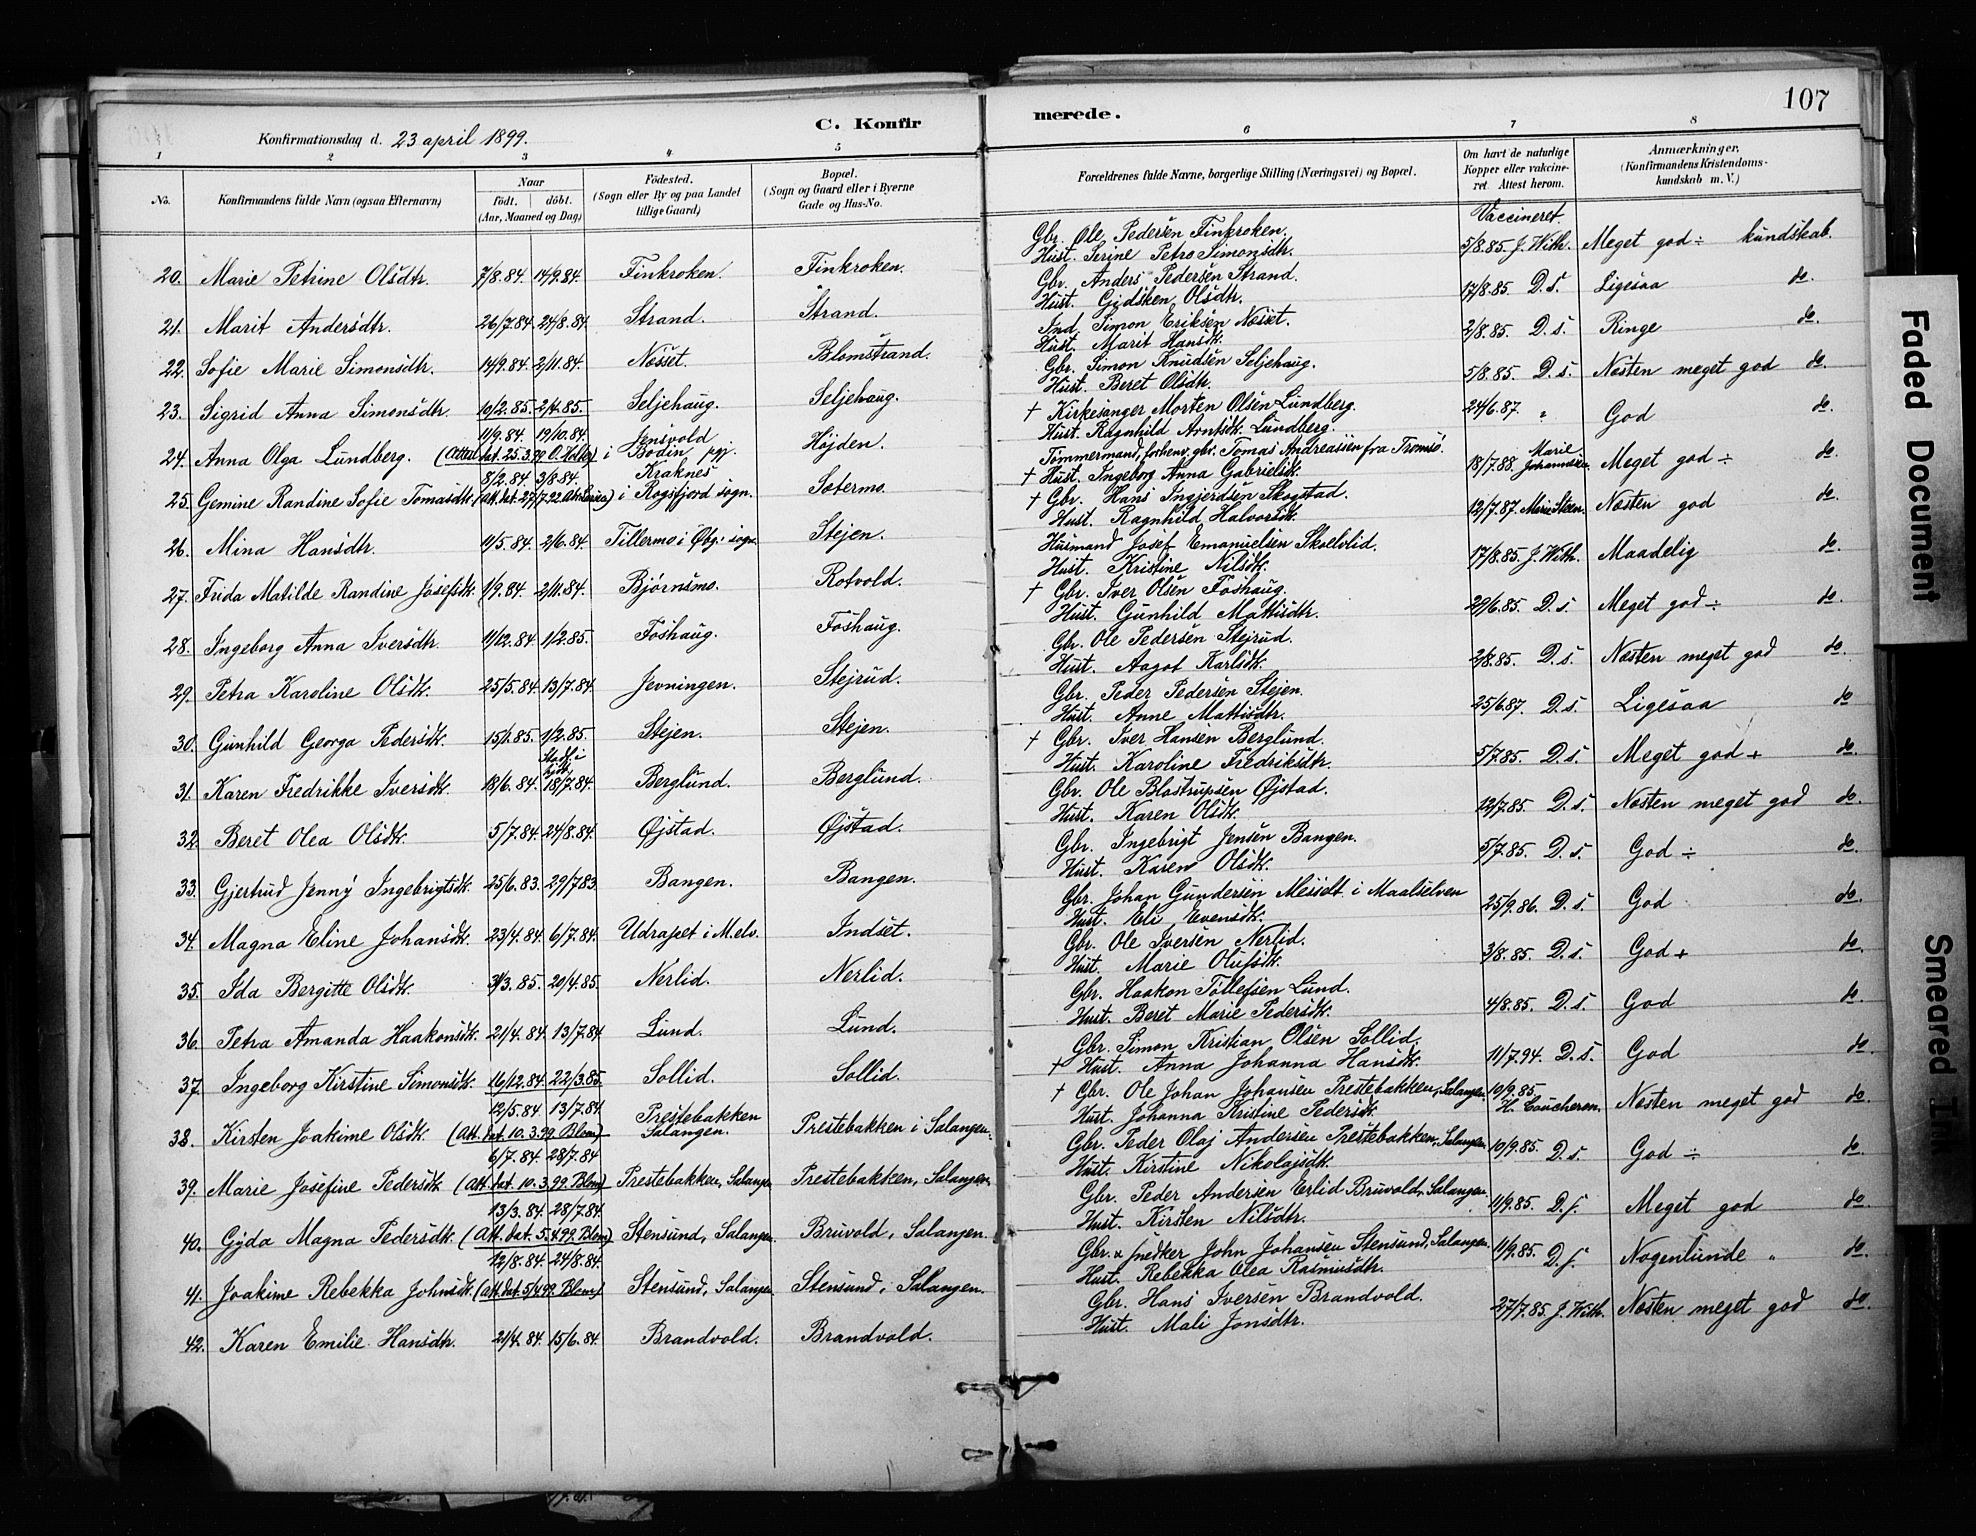 107
C. Konfirmerede.
Konfirmationsdag d. 23 april 1899.
1 2 3 4 5 6 7 8
No. Konfirmandens fulde Navn (ogsaa Efternavn) Naar født. døbt. (Aar, Maaned og Dag) Fødested. (Sogn eller By og paa Landet tillige Gaard) Bopæl. (Sogn og Gaard eller i Byerne Gade og Hus-No. Forældrenes fulde Navne, borgerlige Stilling (Næringsvei) og Bopæl. Om havt de naturlige Kopper eller vakcineret. Attest herom. Anmærkninger. (Konfirmandens Kristendomskundskab m. V.)
Vaccineret.
20. Marie Petrine Olsdtr. 7/8.84 14/9.84. Finkroken. Finkroken. Gbr. Ole Pedersen Finkroken. Hust. Serine Petra Simonsdtr. 5/8.85. J. With. Meget god ÷ kundskab.
21. Marit Andersdtr. 26/7.84. 24/8.84. Strand. Strand. Gbr. Anders Pedersen Strand. Hust. Gjdsken Olsdtr. 17/8.85. D. s. Ligesaa do.
22. Sofie Marie Simonsdtr. 14/9.84. 2/11.84. Nesset. Blomstrand. Ind. Simon Eriksen Nesset. Hust. Marit Hansdt. 2/8.85. D. s. Ringe do.
23. Sigrid Anna Simonsdtr. 10/2.85. 2/4.85. Seljehaug. Seljehaug. Gbr. Simon Knudsen Seljehaug. Hust. Beret Olsdtr. 5/8.85. D. s. Næsten meget god do.
24. Anna Olga Lundberg. 11/9.84. 19/10.84. (Attest dat. 25.3.90 O. Holke) Jensvold i Bodin pgj. Højden. † Kirkesanger Morten Olsen Lundberg. Hust. Ragnhild Arntsdt. Lundberg. 24/6.87. " God do.
25. Gemine Randine Sofie Tomasdt. 8/2.84. 3/8.84. (Att. dat. 27/7.92) Kraknes i Rogsfjord sogn. Sætermo. Tømmermand, forhenv. gbr. Tomas Andreassen fra Tromsø. † Hust. Ingeborg Anna Gabrielsdt. 18/7.88. Marie Johannesen. Meget god ÷ do.
26. Mina Hansdtr. 11/5.84. 2/6.84. Tillermo i Øbg. sogn. Stejen. † Gbr. Hans Ingjerdsen Skogstad. Hust. Ragnhild Halvorsdt. 12/7.87. Marie Steen. Næsten god do.
27. Frida Matilde Randine Josefsdt. 1/9.84. 2/11.84. Bjørnsmo. Rotvold. Husmand Josef Emanuelsen Skoelvlid. Hust. Kristine Nilsdt. 17/8.85. J. With. Maadelig do.
28. Ingeborg Anna Iversdtr. 11/12.84. 1/2.85. Foshaug. Foshaug. † Gbr. Iver Olsen Foshaug. Hust. Gunhild Mattisdtr. 29/6.85. D. s. Meget god ÷ do.
29. Petra Karoline Olsdt. 25/5.84. 13/7.84. Jevningen. Stejrud. Gbr. Ole Pedersen Stejrud. Hust. Aagot Karlsdt. 2/8.85. D. s. Næsten meget god do.
30. Gunhild Georga Pedersdt. 15/1.85. 1/2.85. Stejen. Stejen. Gbr. Peder Pedersen Stejen. Hust. Anne Mattisdtr. 25/6.87. D. s. Ligesaa do
31. Karen Fredrikke Iversdt. 18/6.84. 18/7.84. Berglund. Berglund. † Gbr. Iver Hansen Berglund. Hust. Karoline Fredriksdtr. 5/7.85. D. s. Meget god + do.
32. Beret Olea Olsdt. 5/7.84. 24/8.84. Øjstad. Øjstad. Gbr. Ole Blostrupsen Øjstad. Hust. Karen Olsdt. 12/7.85. D. s. Næsten meget god do.
33. Gjertrud Jenny Ingebrigtsdt. 25/6.83. 29/7.83. Bangen. Bangen. Gbr. Ingebrigt Jensen Bangen. Hust. Karen Olsdt. 5/7.85. D. s. God ÷ do.
34. Magna Eline Johansdt. 23/4.84. 6/7.84. Udrapet i M.elv. Indset. Gbr. Johan Gundersen Messelt i Maalselven Hust. Eli Evensdt. 25/9.86. D. s. God do.
35. Ida Bergitte Olsdt. 31/3.85. 20/4.85. Nerlid. Nerlid. Gbr. Ole Iversen Nerlid. Hust. Marie Olufsdt. 3/8.85. D. s. God + do.
36. Petra Amanda Haakonsdt. 21/4.84. 13/7.84 Lund. Lund. Gbr. Haakon Tollefsen Lund. Hust. Beret Marie Pedersdt. 4/8.85. D. s. God do
37. Ingeborg Kirstine Simonsdt. 16/12.84. 22/3.85. Sollid. Sollid. Gbr. Simon Kristian Olsen Sollid. † Hust. Anna Johanna Hansdt. 11/7.94. D. s. God do.
38. Kirsten Joakime Olsdt. 12/5.84. 13/7.84. (Att. dat. 10.3.99 Blom) Prestebakken Salangen. Prestebakken i Salangen. † Gbr. Ole Johan Johansen Prestebakken, Salangen Hust. Johanna Kristine Pedersdt. 10/9.85. H. Coucheron. Næsten meget god do.
39. Marie Josefine Pedersdt. 6/7.84. 28/7.84 (Att. dat. 10.3.99. Blom) Prestebakken, Salangen Prestebakken, Salangen. Gbr. Peder Olaj Andersen Prestebakken, Salangen. Hust. Kirstine Nikolajsdt. 10/9.85. D. s. God ÷ do.
40. Gyda Magna Pedersdt. 13/3.84. 28/7.84 (Att. dat. 5.4.99. Blom) Stensund, Salangen. Bruvold, Salangen. Gbr. Peder Andersen Erlid Bruvold, Salangen. Hust. Kirsten Nilsdtr. 11/9.85. D. s. Meget god do.
41. Joakime Rebekka Johnsdt. 12/8.84. 24/8.84. (Att. dat. 5/4.99. Blom) Stensund, Salangen Stensund, Salangen. Gbr. & snedker John Johansen Stensund, Salangen. Hust. Rebekka Olea Rasmusdtr. 11/9.85. D. s. Nogenlunde " do.
42. Karen Emilie Hansdtr. 21/4.84. 15/6.84. Brandvold. Brandvold. Gbr. Hans Iversen Brandvold. Hust. Mali Jonsdtr. 27/7.85. J. With. Næsten meget god do.
Faded Document
Smeared Ink